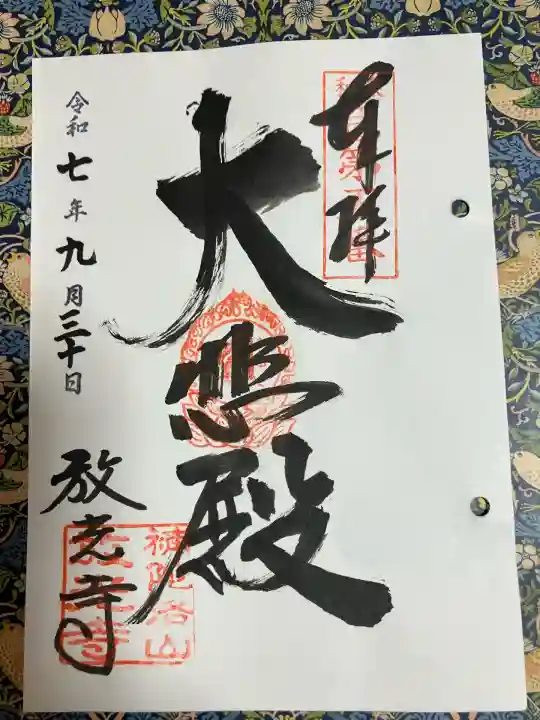 奉拝
大悲殿
令和七年九月三十日
放光寺
補陀洛山